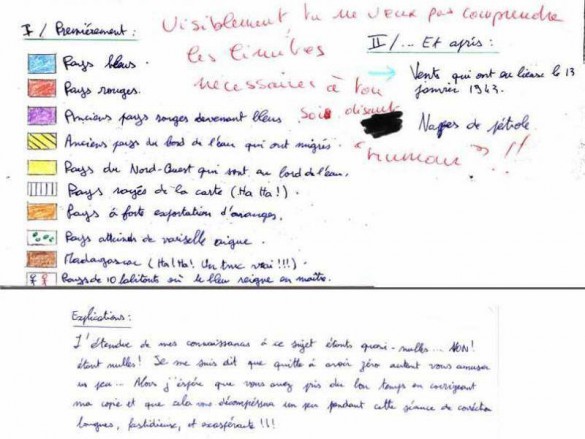 I / Premièrement :
Visiblement tu ne veux pas comprendre
les limites
nécessaires à ton
soit disant
"humour" !!
Pays bleus.
Pays rouges.
Anciens pays rouges devenant bleus.
Anciens pays du bord de l'eau qui ont migrés.
Pays du Nord-Ouest qui sont au bord de l'eau.
Pays rayés de la carte (Ha Ha !).
Pays à forte exportation d'oranges.
Pays atteints de varicelle aigue.
Madagascar (Ha ! Ha ! Un truc vrai !!!).
Pays de 10 habitants où le bleu reigne en maître.
II / ... Et après :
Vents qui ont eu lieu le 13
janvier 1943.
Nappes de pétrole
Explications :
L'étendue de mes connaissances à ce sujet étants quasi-nulles... NON !
étant nulles ! Je me suis dit que quitte à avoir zéro autant vous amuser
un peu... Alors j'espère que vous avez pris du bon temps en corrigeant
ma copie et que cela vous décompressa un peu pendant cette séance de corection
longues, fastidieuse, et exaspérante !!!